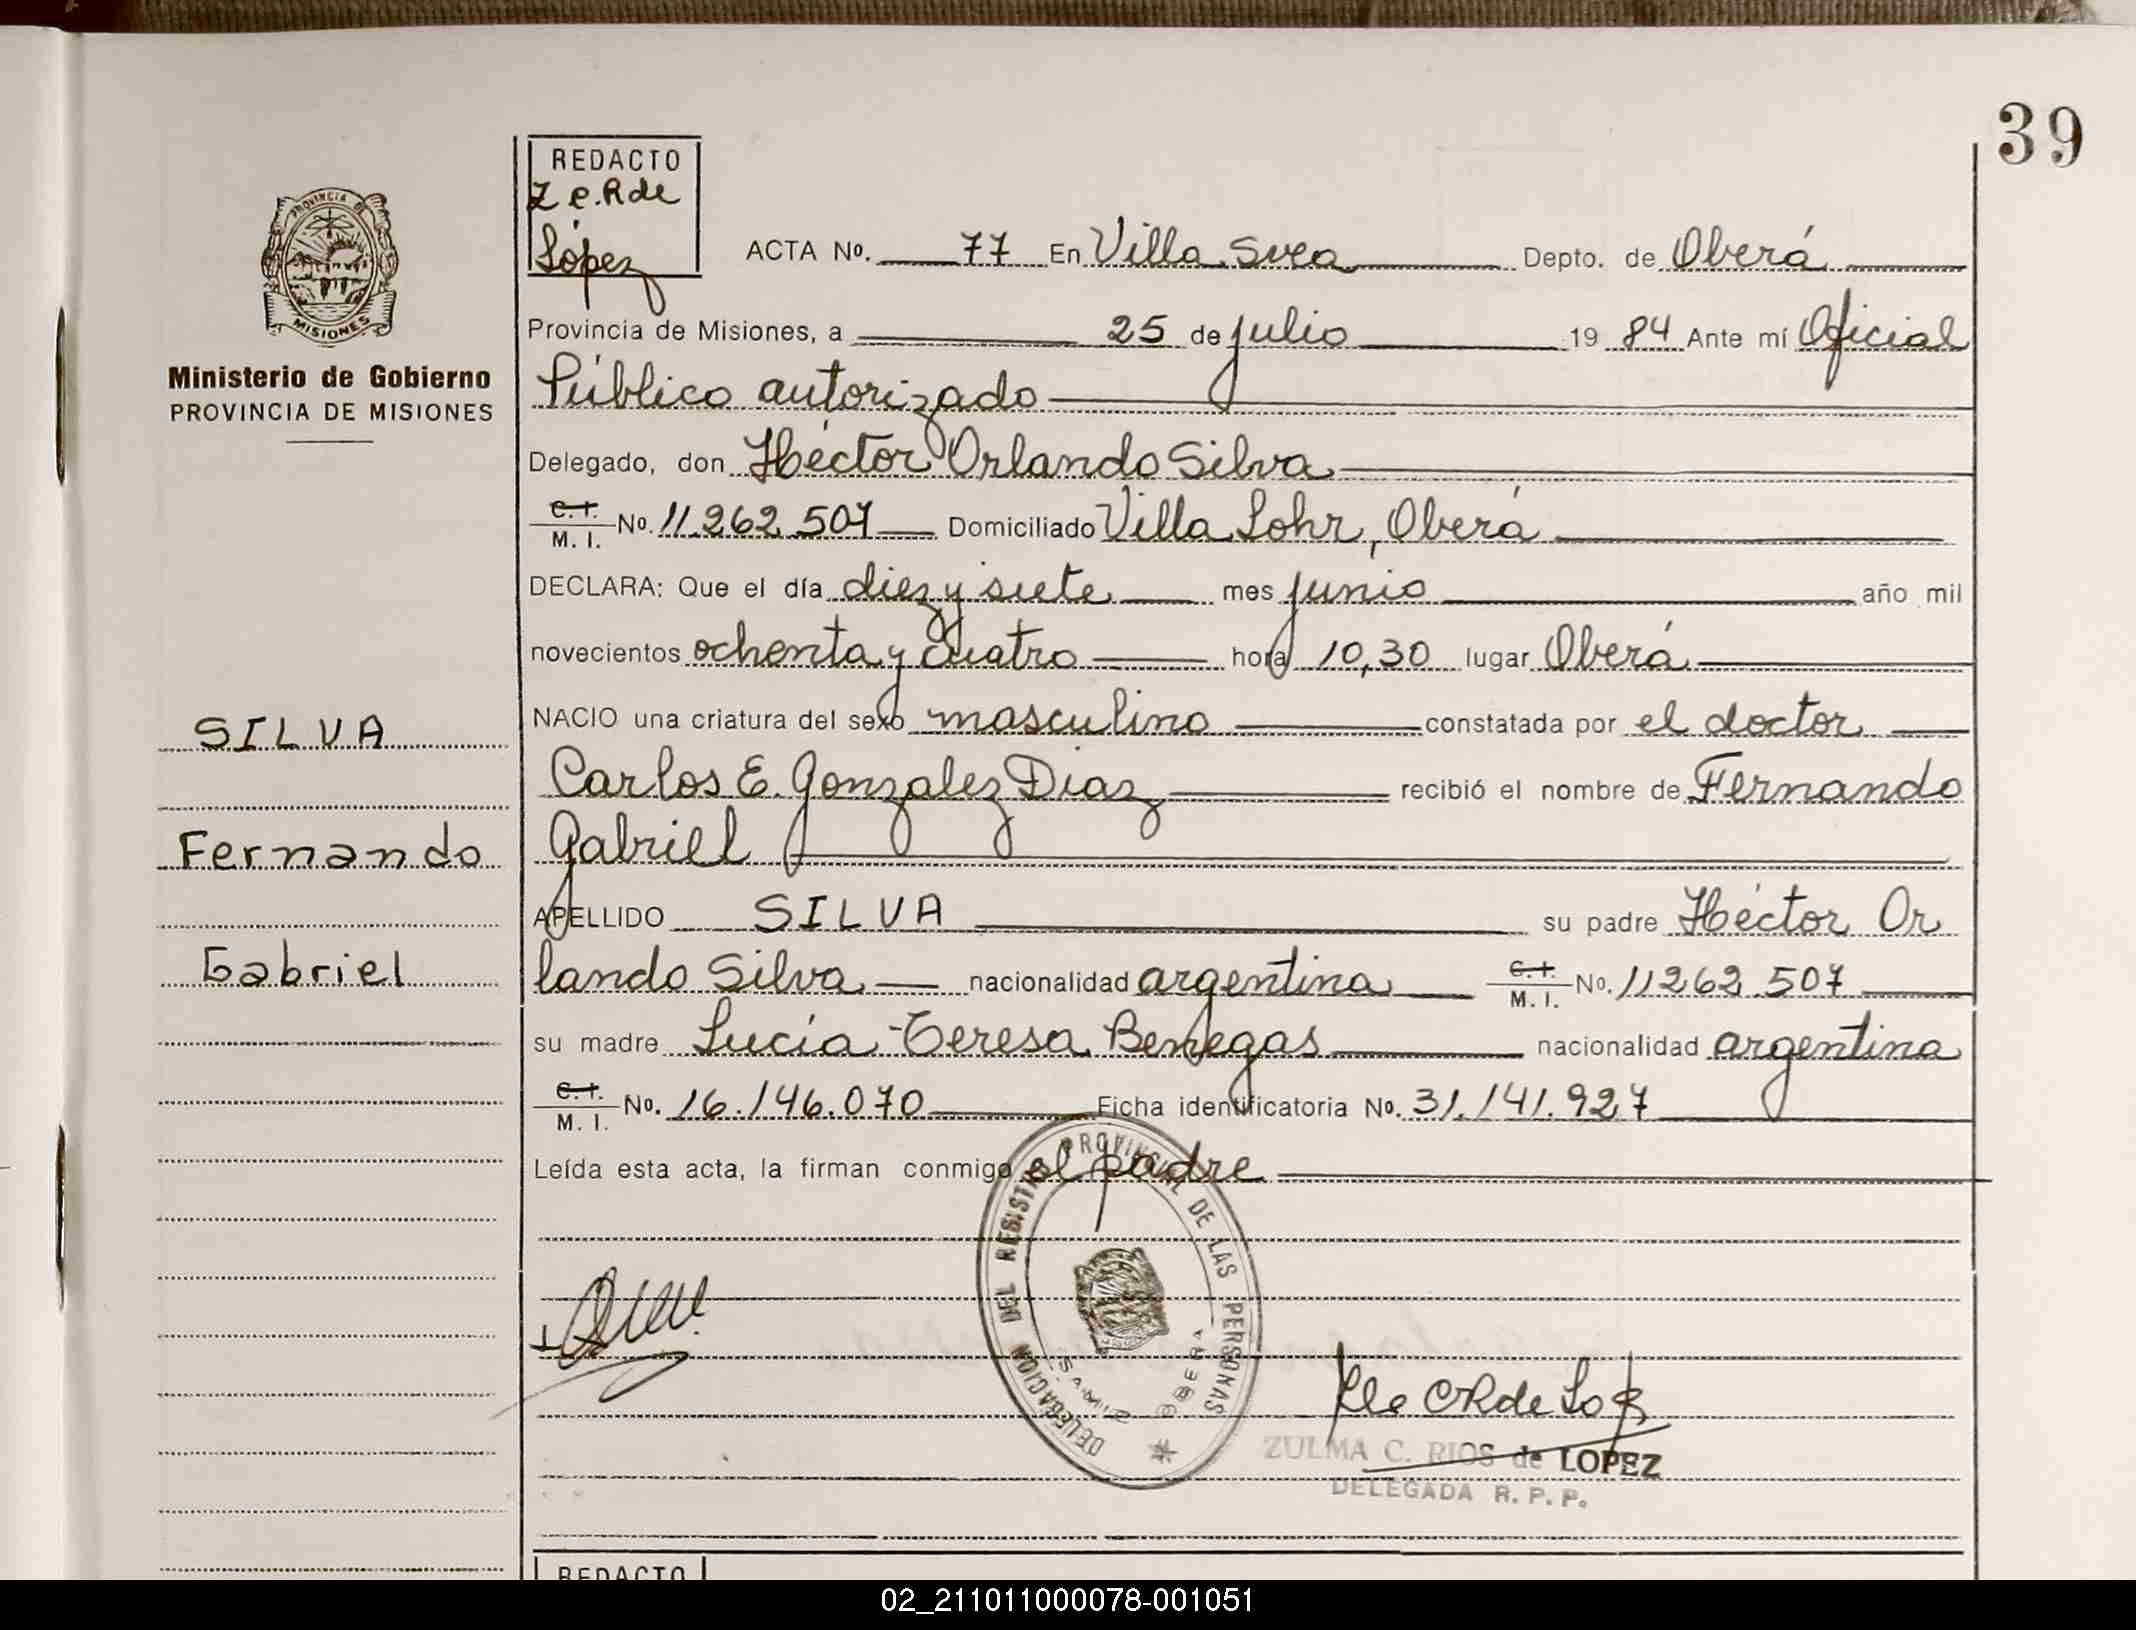 39
REDACTO
Z C. R de
López
PROVINCIA DE
MISIONES
Ministerio de Gobierno
PROVINCIA DE MISIONES
ACTA No. 77 En Villa Svea Depto. de Oberá
Provincia de Misiones, a 25 de julio 19 84 Ante mí Oficial
Público autorizado
Delegado, don Héctor Orlando Silva
C. I. / M. I. No. 11.262.507 Domiciliado Villa Lohr, Oberá
DECLARA: Que el día diez y siete mes junio año mil
novecientos ochenta y cuatro hora 10,30 lugar Oberá
SILVA
NACIO una criatura del sexo masculino constatada por el doctor
Carlos E. Gonzalez Diaz recibió el nombre de Fernando
Fernando
Gabriel
APELLIDO SILVA su padre Héctor Or
Gabriel
lando Silva nacionalidad argentina C. I. / M. I. No. 11262.507
su madre Lucía Teresa Benegas nacionalidad argentina
C. I. / M. I. No. 16.146.070 Ficha identificatoria No. 31.141.927
Leída esta acta, la firman conmigo el padre
DELEGACION DEL REGISTRO PROVINCIAL DE LAS PERSONAS
OBERA
ZULMA C. RIOS de LOPEZ
DELEGADA R. P. P.
REDACTO
02_211011000078-001051